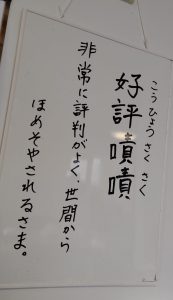 こうひょうさくさく
好評嘖嘖
非常に評判がよく、世間から
ほめそやされるさま。